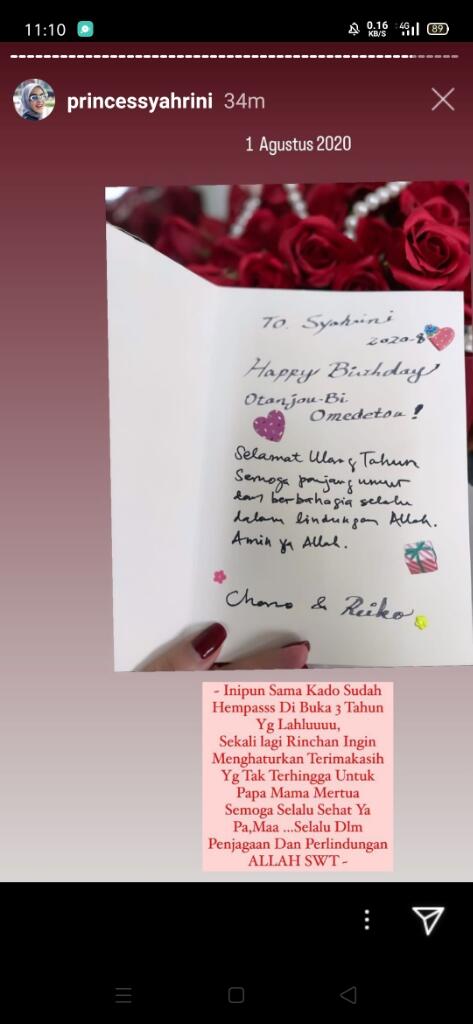 11:10
0.16
KB/S
4G
89
princessyahrini 34m
1 Agustus 2020
To. Syahrini
2020-8
Happy Birthday
Otanjou-Bi
Omedetou!
Selamat Ulang Tahun
Semoga panjang umur
dan berbahagia selalu
dalam lindungan Allah.
Amin ya Allah.
Chono & Reiko
- Inipun Sama Kado Sudah
Hempasss Di Buka 3 Tahun
Yg Lahluuuu,
Sekali lagi Rinchan Ingin
Menghaturkan Terimakasih
Yg Tak Terhingga Untuk
Papa Mama Mertua
Semoga Selalu Sehat Ya
Pa,Maa ...Selalu Dlm
Penjagaan Dan Perlindungan
ALLAH SWT -